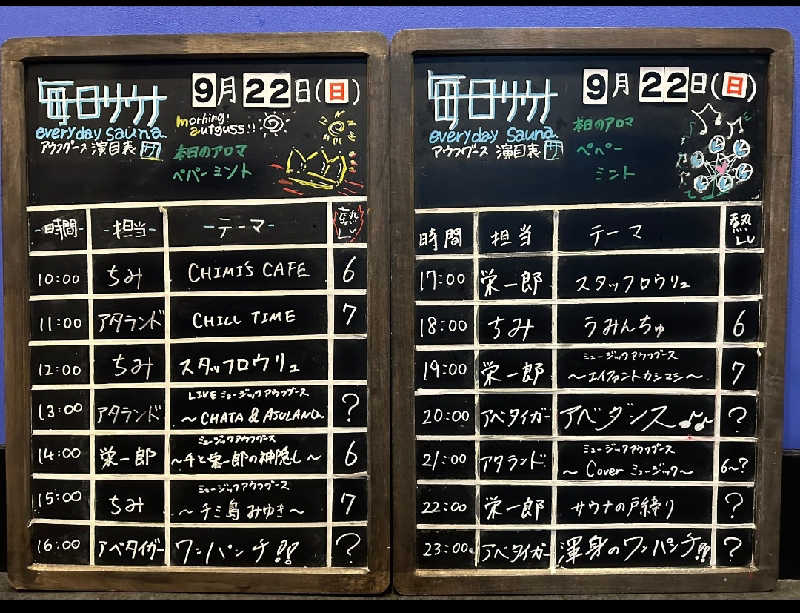 毎日サウナ
9月22日(日)
everyday sauna
morning! aufguss!!
アウフグース 演目表
本日のアロマ
ペパーミント
時間 担当 テーマ 熱LV
10:00 ちみ CHIMI'S CAFE 6
11:00 アタランド CHILL TIME 7
12:00 ちみ スタッフロウリュ
13:00 アタランド LIVE ミュージックアウフグース ?
～CHATA & ASULAND
14:00 栄一郎 ミュージックアウフグース 6
～千と栄一郎の神隠し～
15:00 ちみ ミュージックアウフグース 7
～チミ島みゆき～
16:00 アベタイガー ワンパンチ!! ?
毎日サウナ
9月22日(日)
everyday sauna
アウフグース 演目表 サ
本日のアロマ
ペパー
ミント
時間 担当 テーマ 熱LV
17:00 栄一郎 スタッフロウリュ
18:00 ちみ うみんちゅ 6
19:00 栄一郎 ミュージックアウフグース 7
～エイファントカシマシ～
20:00 アベタイガー アベダンス♫ ?
21:00 アタランド ミュージックアウフグース 6~?
～Coverミュージック～
22:00 栄一郎 サウナの戸締り ?
23:00 アベタイガー 渾身のワンパンチ!! ?